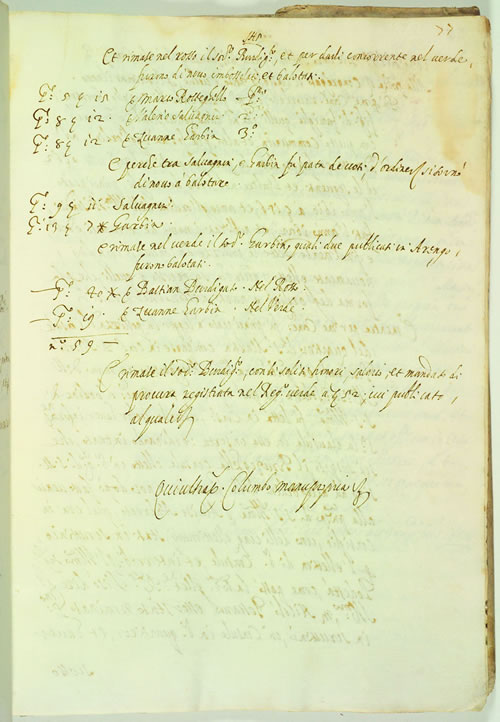 77
Et rimase nel rosso il sod.º Bendig.º, et per darli concorrente nel verde,
furno di novo imbossolati et balotati.
P.º 5 q 15 p Marco Rotteghello P.º
P.º 8 q 12 p Valerio Salvagnin 2.º
P.º 8 q 12 p Zuanne Garbin 3.º
E perche tra Salvagnin, e Garbin fu pata de voti d'ordine si tornò
di novo a balotare.
P.º 9 q 11 Salvagnin
P.º 13 q 7 Garbin
e rimase nel verde il sod.º Garbin, quali due publicati in Arengo,
furno balotati.
P.º 40 p Bastian Bendigato. Nel Rosso
P.º 19. p Zuanne Garbin. Nel Verde.
n.º 59
E rimase il sod.º Bendig.º, con li soliti honori, salario, et mandato di
procura registrata nel Reg.º verde a 52. cui publicato,
al quale
Columbo manu propria